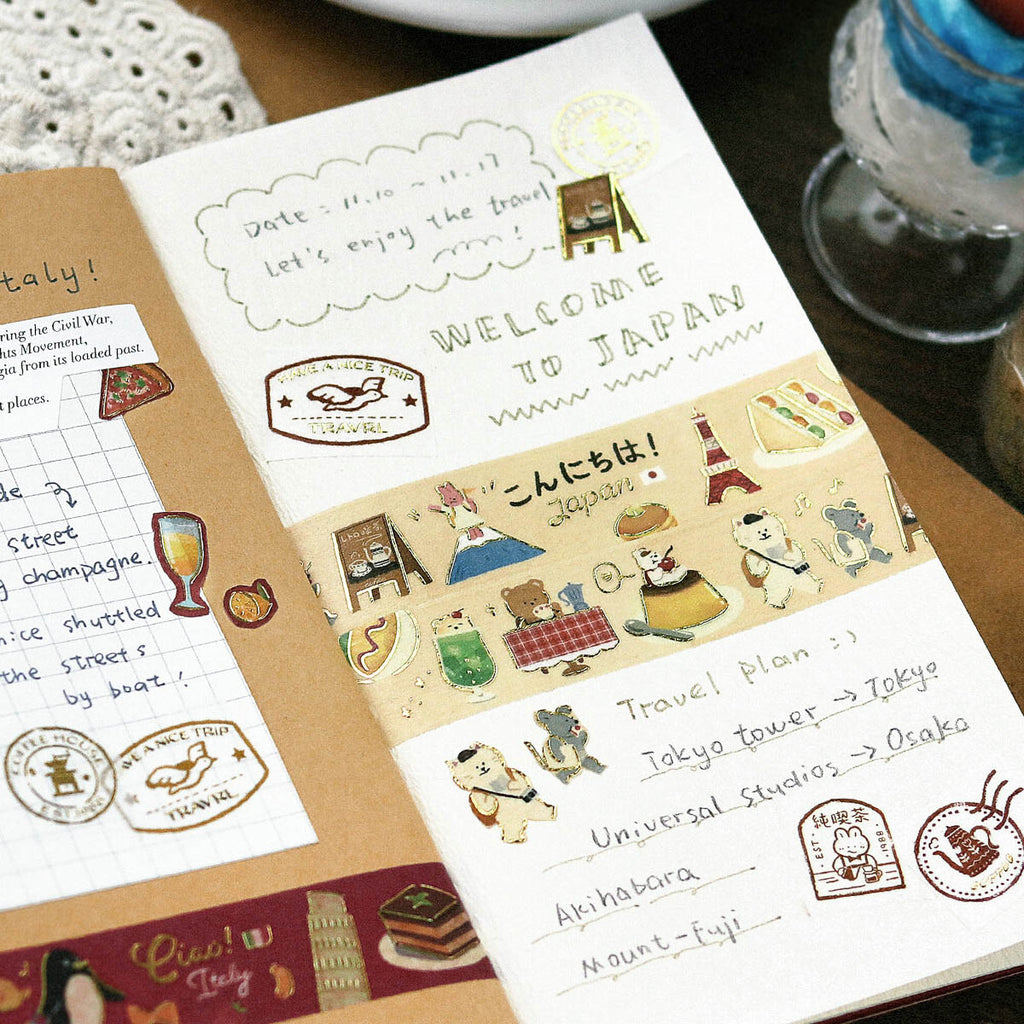 taly!
ring the Civil War,
hts Movement,
gia from its loaded past.
t places.
de
street
g champagne.
nice shuttled
the streets
by boat!
COFFEE HOUSE
A NICE TRIP
TRAVRL
Ciao!
Italy
Date : 11.10 ~ 11.17
Let's enjoy the travel
!
WELCOME
TO JAPAN
HAVE A NICE TRIP
TRAVRL
こんにちは!
Japan
Travel plan :)
Tokyo tower → Tokyo
Universal Studios → Osaka
Akihabara
Mount-Fuji
純喫茶
EST. 1988
COFFEE